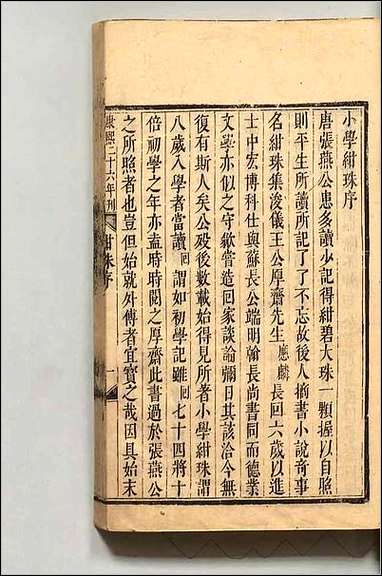 小學紺珠序
唐張燕公患多讀少記得紺碧大珠一顆握以自照
則平生所讀所記了了不忘故後人摘書小說奇事
名紺珠集浚儀王公厚齋先生應麟長回六歲以進
士中宏博科仕與蘇長公端明翰長尚書同而德業
文學亦似之守歙嘗造回家談論彌日其該洽今無
復有斯人矣公歿後數載始得見所著小學紺珠謂
八歲入學者當讀回謂如初學記雖回七十四將十
倍初學之年亦盍時時閱之厚齋此書過於張燕公
之所照者也豈但始就外傅者宜寶之哉因具始末
康熙二十六年刊 紺珠序 一